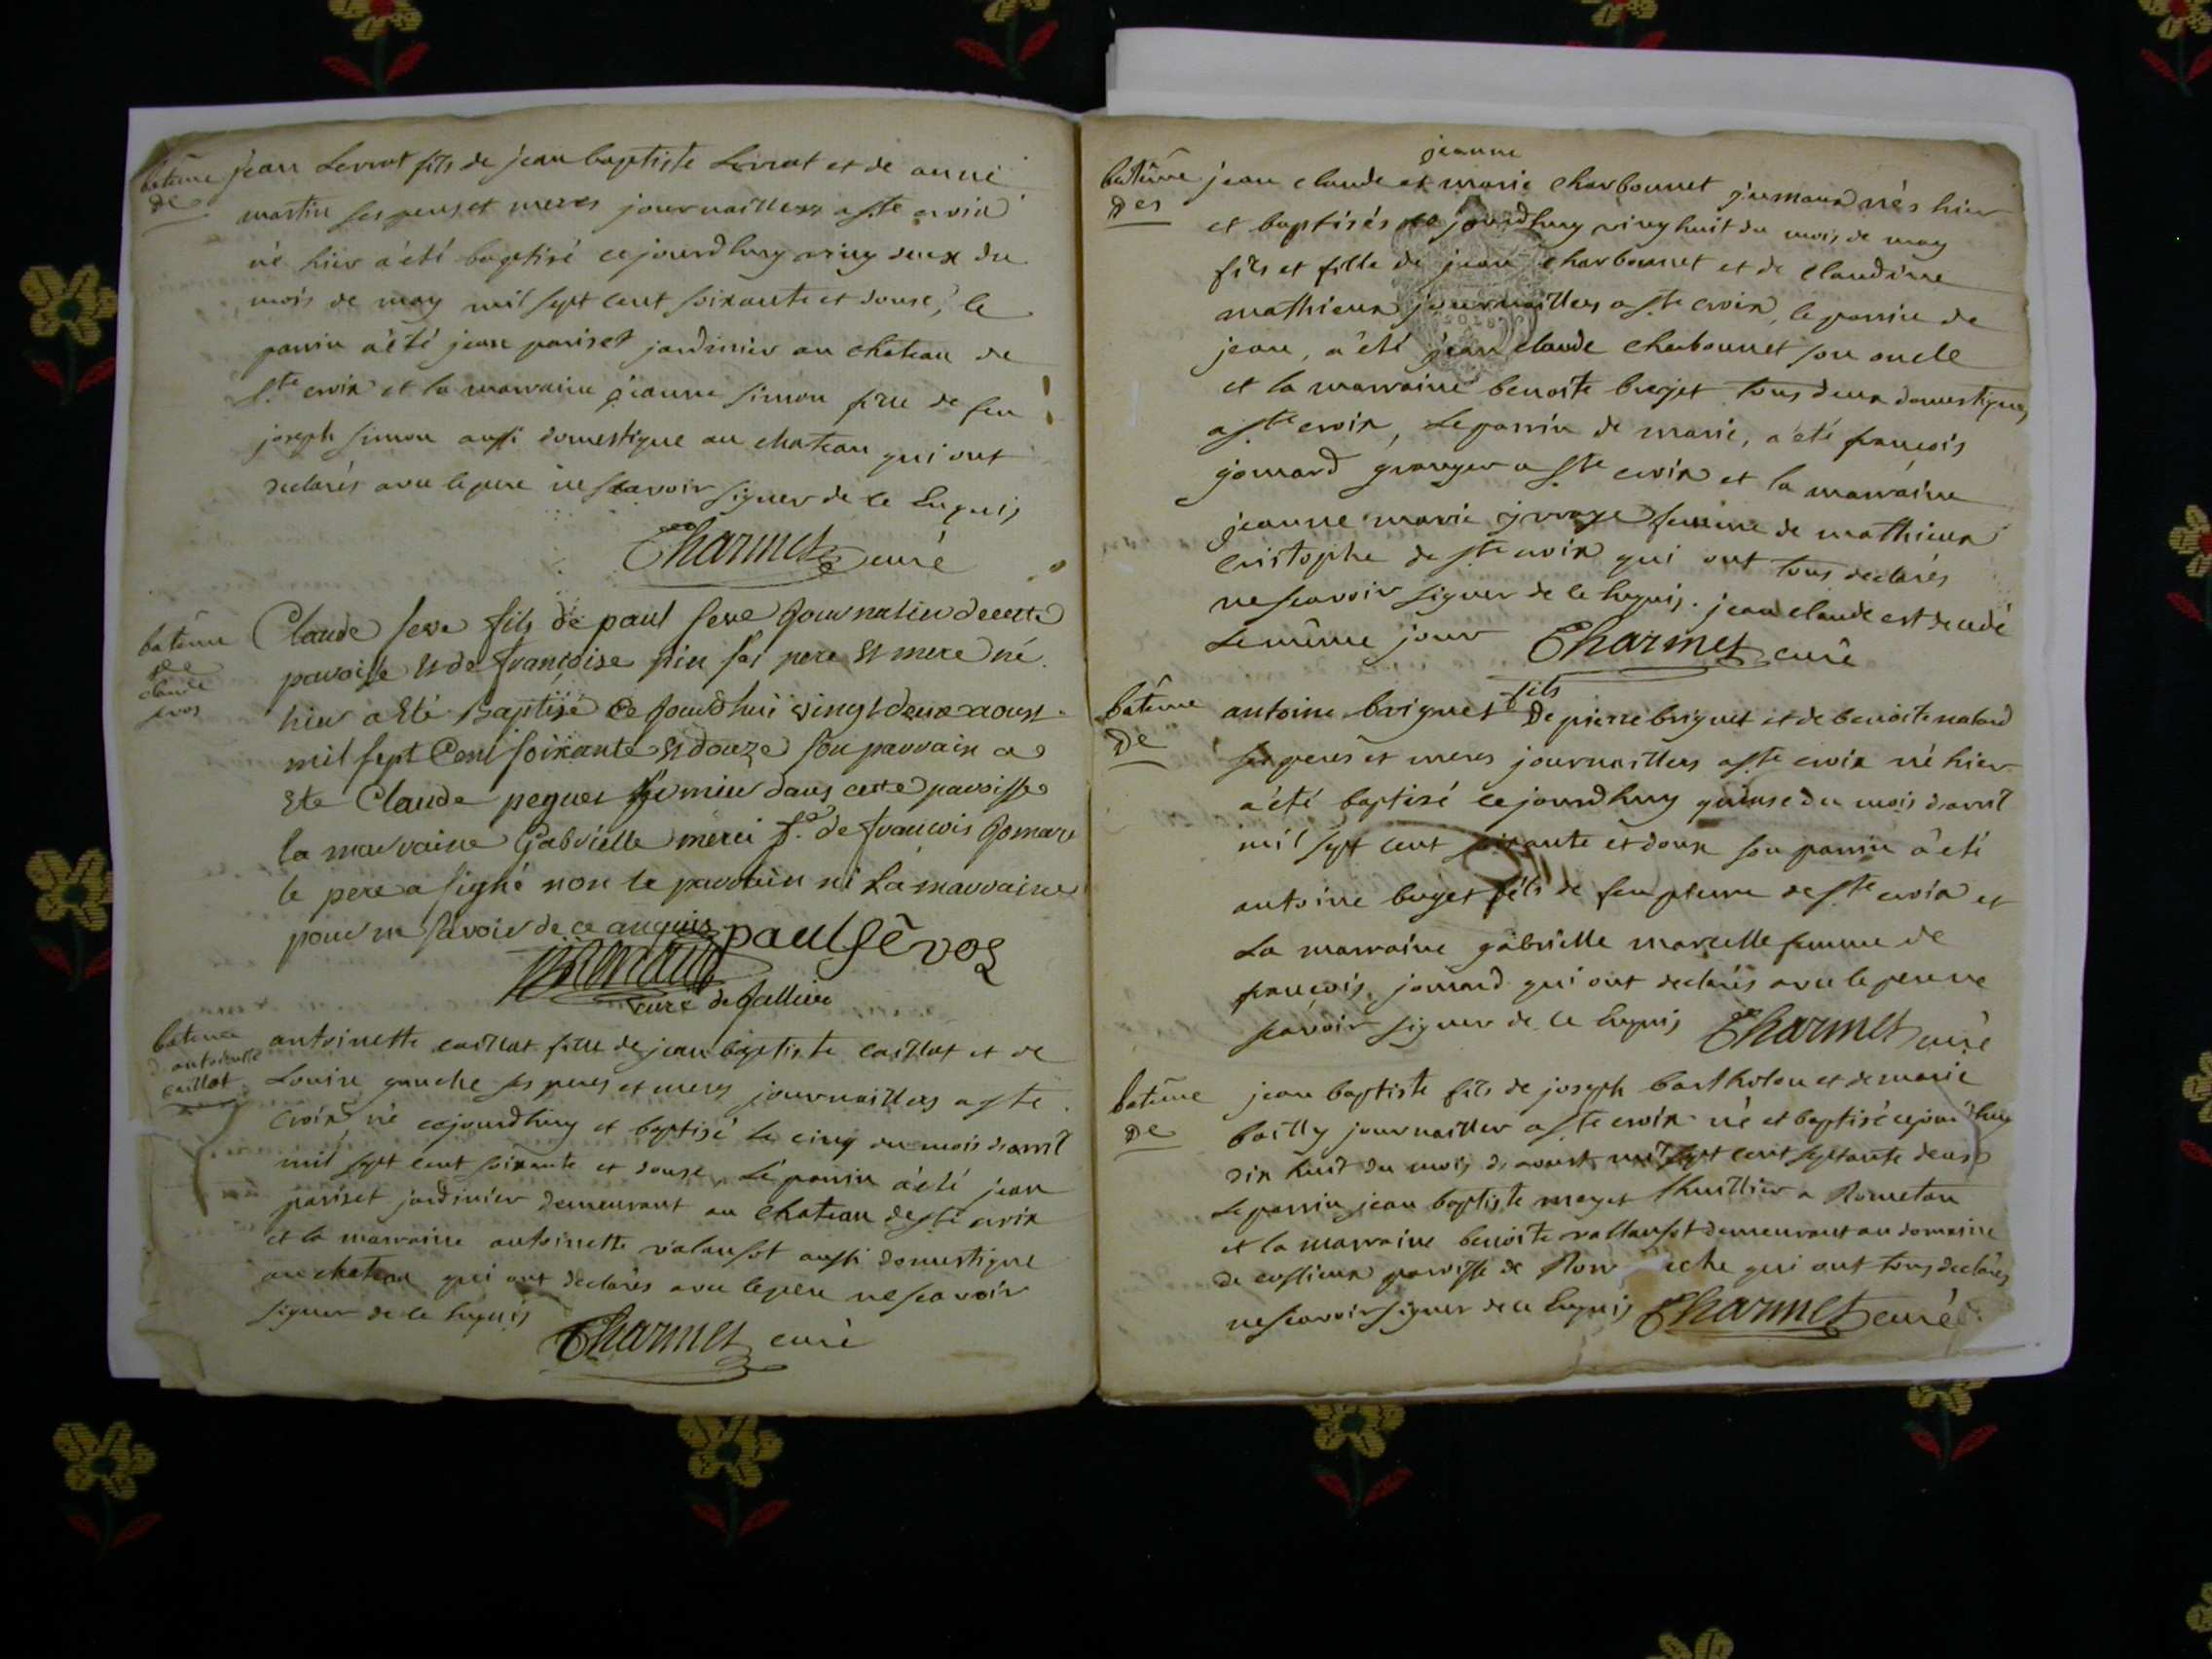 batême
de
jean Levrat fils de jean baptiste Levrat et de anne
martin ses peres et meres journaillers a Ste croix
né hier a été baptisé cejourdhuy ving deux du
mois de may mil sept cent soixante et douse, le
parrin a été jean pariset jardinier au chateau de
Ste croix et la marraine jeanne simon fille de feu
joseph simon aussi domestique au chateau qui ont
declarés avec le pere ne scavoir signer de ce Enquis
Charmet curé
batême
de
claude
fils de paul journalier de cette
paroisse Et de françoise ses pere Et mere né
hier a Eté Baptisé Ce jourdhui vingt deux aoust
mil sept Cent soixante Et douze son parrain a
Ete Claude dans cette paroisse
la marraine Gabrielle merci fe. de francois Gomard
le pere a signé non le parrain ni La marraine
pour ne savoir de ce anquis paul sêvoz
curé de
bateme
d'antoinette
caillat
antoinette caillat fille de jean baptiste caillat et de
Louise gauche ses peres et meres journaillers a Ste
croix né cejourdhuy et baptisé le cinq du mois davril
mil sept cent soixante et douse. Le parrin a été jean
pariset jardinier demeurant au chateau de Ste croix
et la marraine antoinette valansot aussi domestique
au chateau qui ont declarés avec le pere ne scavoir
signer de ce Enquis
Charmet curé
batême
des
jeanne
jean claude et marie charbonnet jumaux nés hier
et baptisés ce jourdhuy ving huit du mois de may
fils et fille de jean charbonnet et de claudine
mathieux journaillers a Ste croix, le parrin de
jean, a été jean claude charbonnet son oncle
et la marraine benoite buget tous deux domestiques
a Ste croix, Le parrin de marie, a été françois
gomard granger a Ste croix et la marraine
jeanne marie femme de mathieux
cristophe de Ste croix qui ont tous declarés
ne scavoir signer de ce Enquis. jean claude est decedé
Le même jour Charmet curé
batême
de
antoine briguet fils de pierre briguet et de benoite
ses peres et meres journaillers a Ste croix né hier
a été baptisé cejourdhuy quinse du mois d'avril
mil sept cent soixante et douse son parrin a été
antoine buget fils de feu pierre de Ste croix et
La marraine gabrielle marcelle femme de
françois jomard qui ont declarés avec le pere ne
scavoir signer de ce Enquis Charmet curé
batême
de
jean baptiste fils de joseph bartholon et de marie
bailly journaillier a Ste croix né et baptisé cejourdhuy
dix huit du mois d'avoust mil sept cent septante deux
Le parrin jean baptiste mayet thuillier a Rometon
et la marraine benoite vallansot demeurant au domaine
de paroisse de qui ont tous declarés
ne scavoir signer de ce Enquis Charmet curé